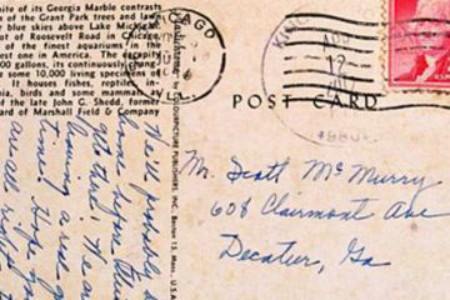 ite of its Georgia Marble contrasts
n of the Grant Park trees and law
e blue skies above Lake Michigan
ot of Roosevelt Road in Chicago,
of the finest aquariums in the
est one in America. The capacity
00 gallons, its continuously chang
e some 10,000 living specimens o
It houses fishes, reptiles, in-
nia, birds and some mammals, as
of the late John G. Shedd, former
ard of Marshall Field & Company
CAGO
by COLOURPICTURE PUBLISHERS, INC., Boston 15, Mass., U.S.A.
POST CARD
KING
AUG
12
We'll probably b
home before this
gets there! We are
having a nice
time. Hope you
are all right
Mr. Scott McMurry
608 Clairmont Ave
Decatur, Ga